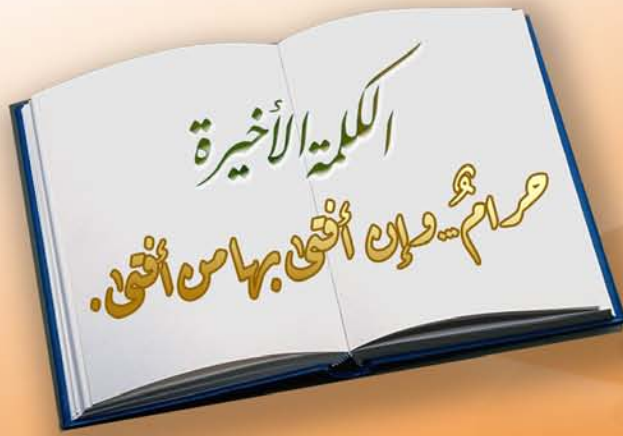 الكلمة الأخيرة
حرامٌ.. وإن أفتى بها من أفتى.